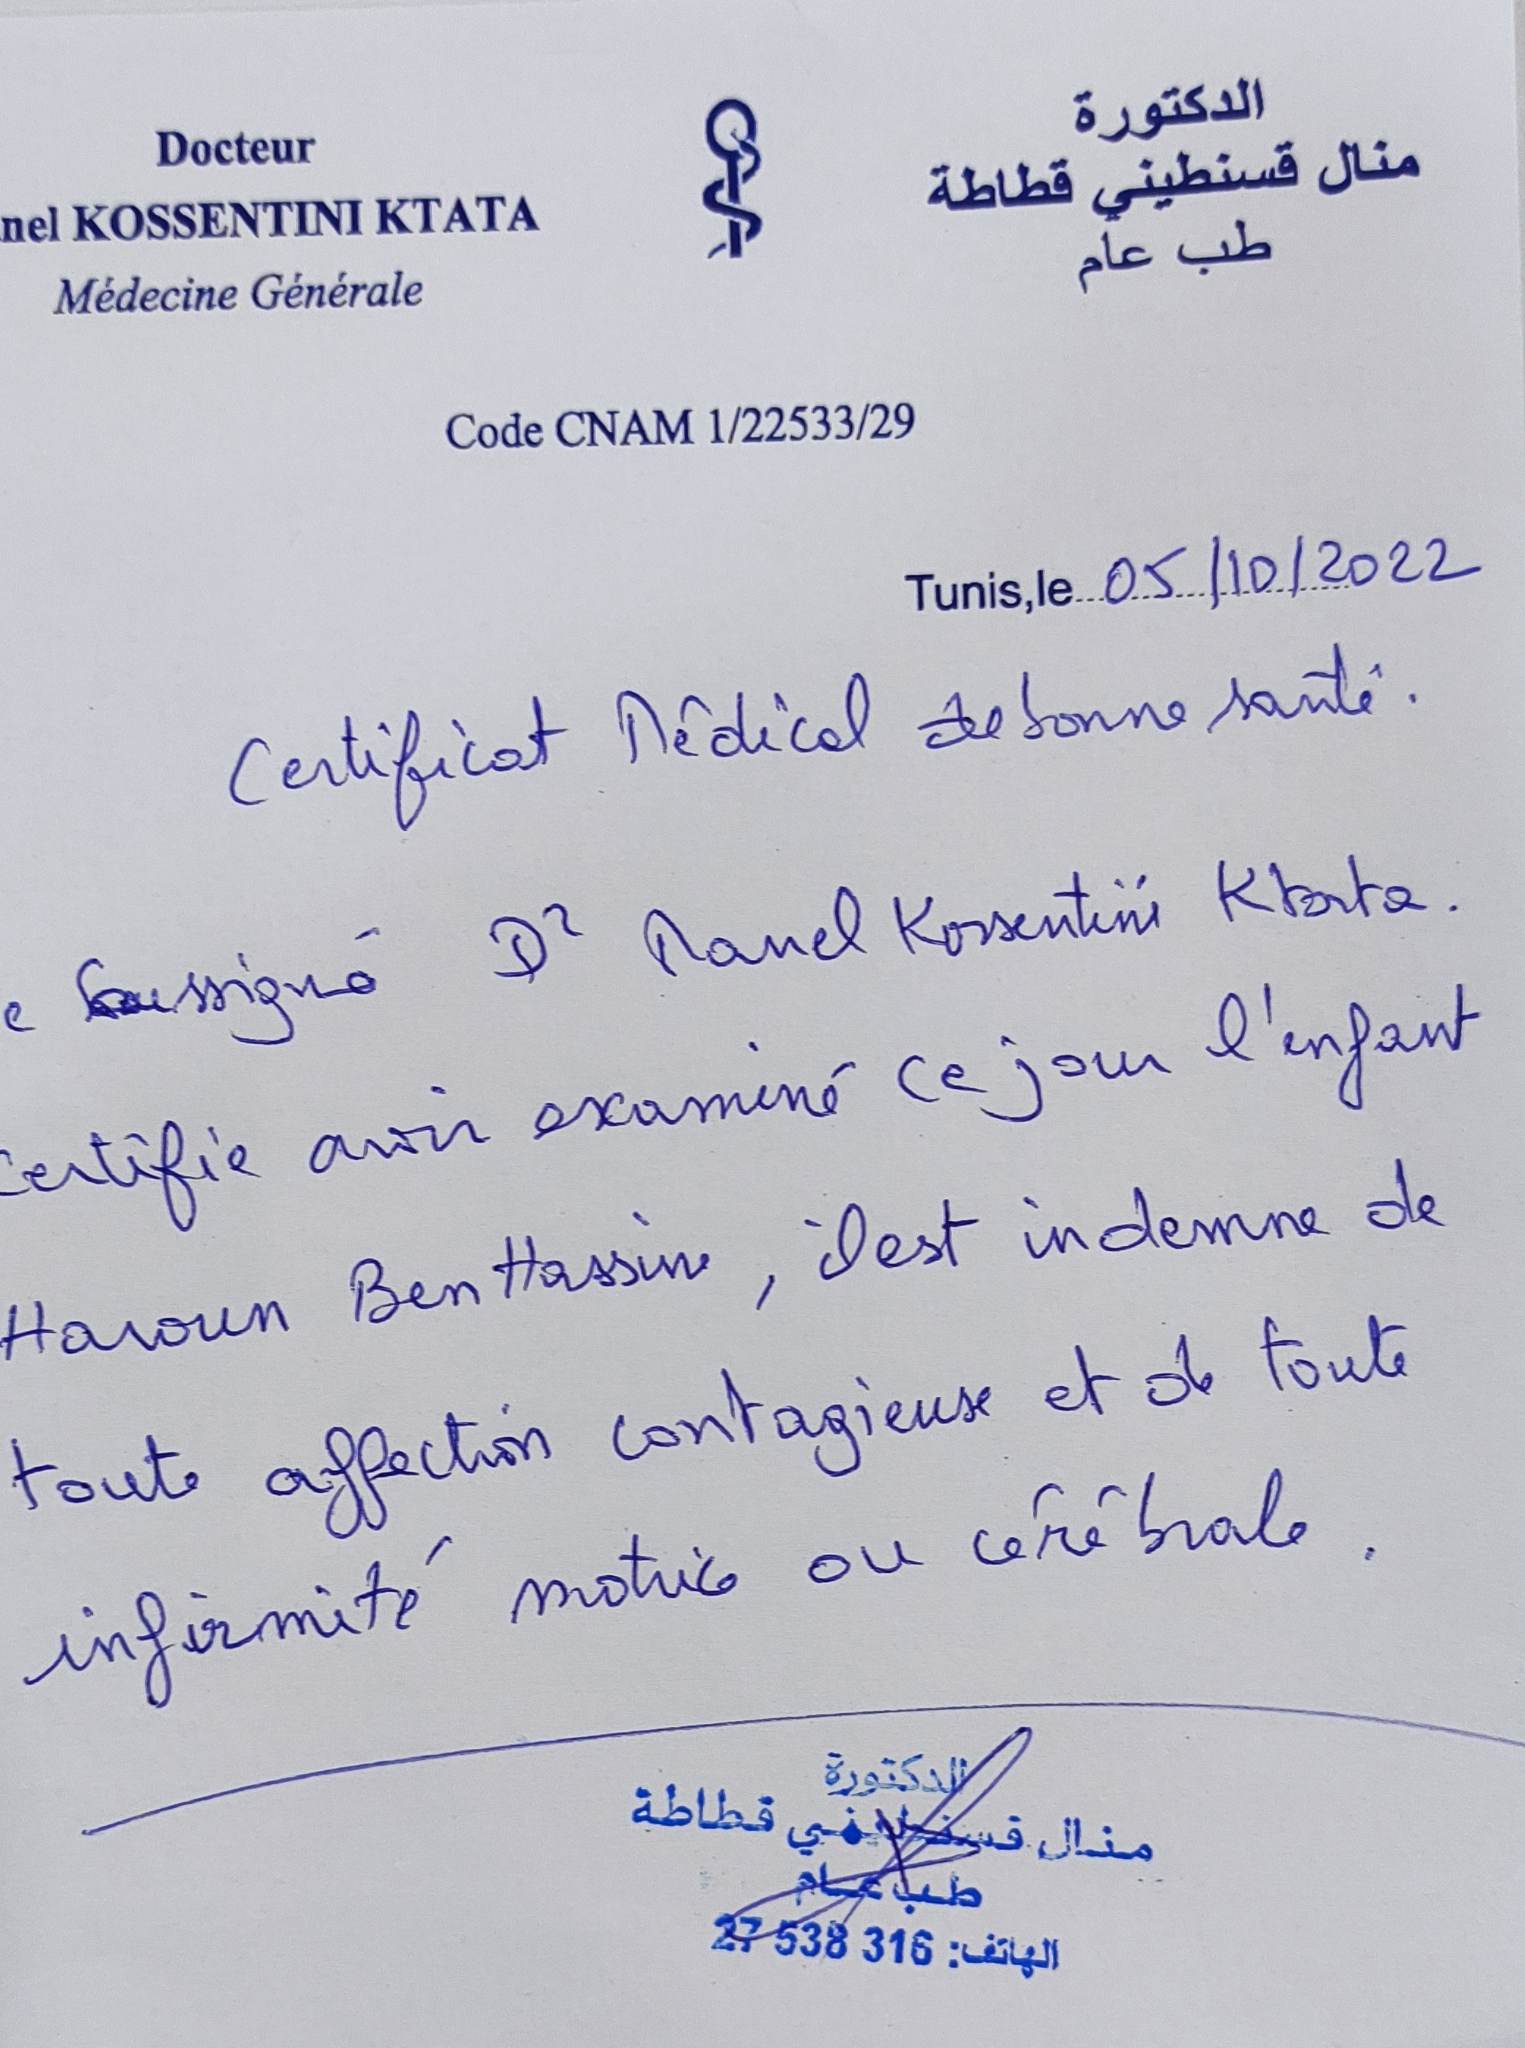 Docteur
nel KOSSENTINI KTATA
Médecine Générale
الدكتورة
منال قسنطيني قطاطة
طب عام
Code CNAM 1/22533/29
Tunis,le 05/10/2022
Certificat Médical de bonne santé.
e soussigné Dr Manel Kossentini Ktata.
certifie avoir examiné ce jour l'enfant
Haroun Ben Hassine, il est indemne de
toute affection contagieuse et de toute
infirmité motrice ou cérébrale.
الدكتورة
منال قسنطيني قطاطة
طب عام
الهاتف: 27 538 316